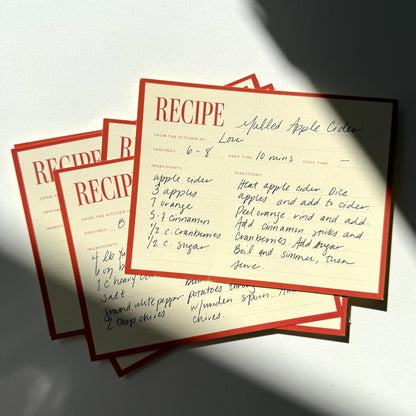 RECIPE Mulled Apple Cider
FROM THE KITCHEN OF: Lou
SERVINGS: 6-8 PREP TIME: 10 mins COOK TIME: —
INGREDIENTS:
apple cider
3 apples
1 orange
5-7 cinnamon
1/2 c. cranberries
1/2 c. sugar
DIRECTIONS:
Heat apple cider. Dice
apples and add to cider.
Peel orange rind and add.
Add cinnamon sticks and
cranberries. Add sugar.
Boil and simmer, then
serve
RECIPE
FROM THE KITCHEN
SERVINGS: 8
INGREDIENTS:
4 lb
1 c heavy
salt
ground white pepper
2 tbsp chives
potatoes
w/wooden spoon.
chives.
RECI
FROM
SERVIN
INGRE